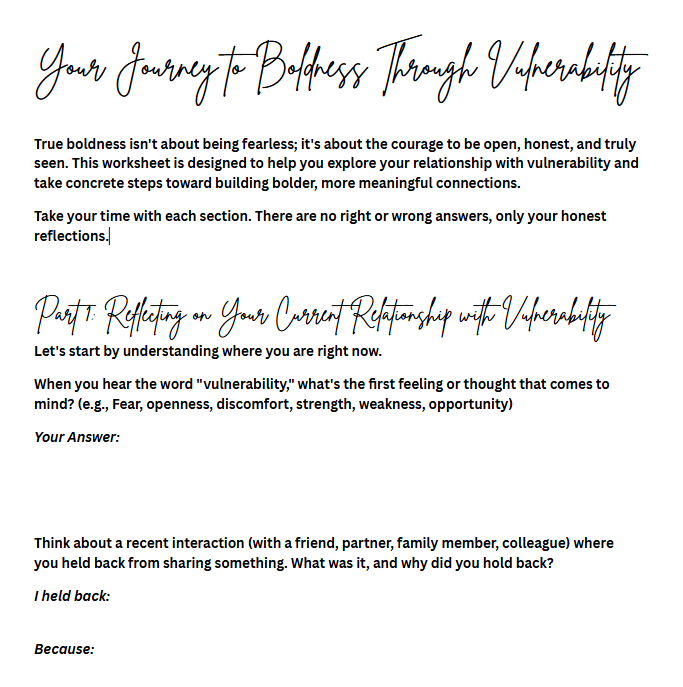 Your Journey to Boldness Through Vulnerability
True boldness isn't about being fearless; it's about the courage to be open, honest, and truly
seen. This worksheet is designed to help you explore your relationship with vulnerability and
take concrete steps toward building bolder, more meaningful connections.
Take your time with each section. There are no right or wrong answers, only your honest
reflections.
Part 1: Reflecting on Your Current Relationship with Vulnerability
Let's start by understanding where you are right now.
When you hear the word "vulnerability," what's the first feeling or thought that comes to
mind? (e.g., Fear, openness, discomfort, strength, weakness, opportunity)
Your Answer:
Think about a recent interaction (with a friend, partner, family member, colleague) where
you held back from sharing something. What was it, and why did you hold back?
I held back:
Because: